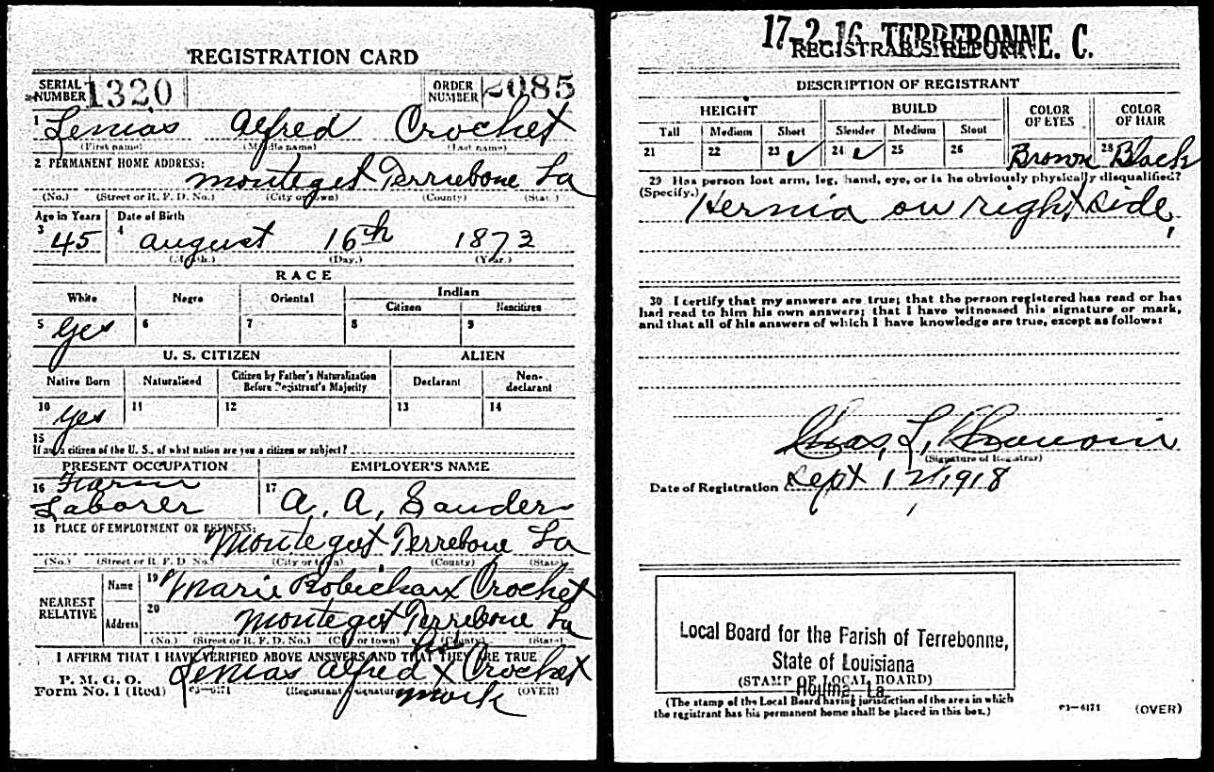 REGISTRATION CARD
SERIAL NUMBER 1320 ORDER NUMBER 2085
1 Lenias Alfred Crochet
(First name) (Middle name) (Last name)
2 PERMANENT HOME ADDRESS:
Montegut Terrebone La
(No.) (Street or R. F. D. No.) (City or town) (County) (State)
Age in Years Date of Birth
3 45 4 August 16th 1873
(Month.) (Day.) (Year.)
RACE
White Negro Oriental Indian
Citizen Noncitizen
5 yes 6 7 8 9
U. S. CITIZEN ALIEN
Native Born Naturalized Citizen by Father's Naturalization Before Registrant's Majority Declarant Non-declarant
10 yes 11 12 13 14
15
If not a citizen of the U. S., of what nation are you a citizen or subject?
PRESENT OCCUPATION EMPLOYER'S NAME
16 Farm Laborer 17 A. A. Sanders
18 PLACE OF EMPLOYMENT OR BUSINESS:
Montegut Terrebone La
(No.) (Street or R. F. D. No.) (City or town) (County) (State)
NEAREST RELATIVE Name 19 Marie Robichaux Crochet
Address 20 Montegut Terrebone La
(No.) (Street or R. F. D. No.) (City or town) (County) (State)
I AFFIRM THAT I HAVE VERIFIED ABOVE ANSWERS AND THAT THEY ARE TRUE
his
Lenias Alfred x Crochet
mark
P. M. G. O.
Form No. 1 (Red) 03—6171 (Registrant's signature or mark) (OVER)
17-2-16 TERREBONNE. C.
REGISTRAR'S REPORT
DESCRIPTION OF REGISTRANT
HEIGHT BUILD COLOR OF EYES COLOR OF HAIR
Tall Medium Short Slender Medium Stout
21 22 23 ✓ 24 ✓ 25 26 Brown 28 Black
29 Has person lost arm, leg, hand, eye, or is he obviously physically disqualified?
(Specify.) Hernia on right side,
30 I certify that my answers are true; that the person registered has read or has
had read to him his own answers; that I have witnessed his signature or mark,
and that all of his answers of which I have knowledge are true, except as follows:
Chas, L,
(Signature of Registrar)
Date of Registration Sept 12/1918
Local Board for the Parish of Terrebonne,
State of Louisiana
(STAMP OF LOCAL BOARD)
Houma La
(The stamp of the Local Board having jurisdiction of the area in which
the registrant has his permanent home shall be placed in this box.)
03—6171 (OVER)